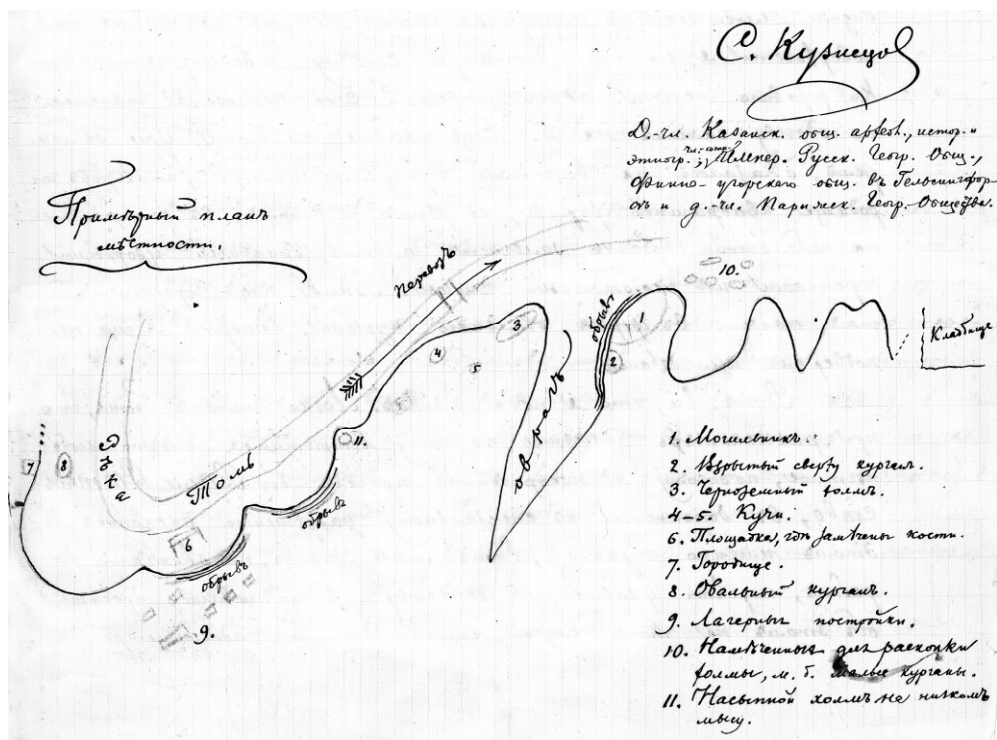 С. Кузнецов
Д.-чл. Казанск. общ. археол., истор. и
этногр.; чл.-сотр. Импер. Русск. Геогр. Общ.,
Финно-угорскаго общ. въ Гельсингфор-
сѣ и д.-чл. Парижск. Геогр. Общества.
Примѣрный планъ
мѣстности.
перевозъ
обрывъ
10.
1
2
3
4
5
Кладбище
оврагъ
11.
7
8
Рѣка
Томь
6
обрывъ
обрывъ
9.
1. Могильникъ.
2. Взрытый сверху курганъ.
3. Черноземный холмъ.
4-5. Кучи.
6. Площадка, гдѣ замѣчены кости.
7. Городище.
8. Овальный курганъ.
9. Лагерныя постройки.
10. Намѣченные для раскопки
холмы, м. б. малые курганы.
11. Насыпной холмъ на низкомъ
мысу.